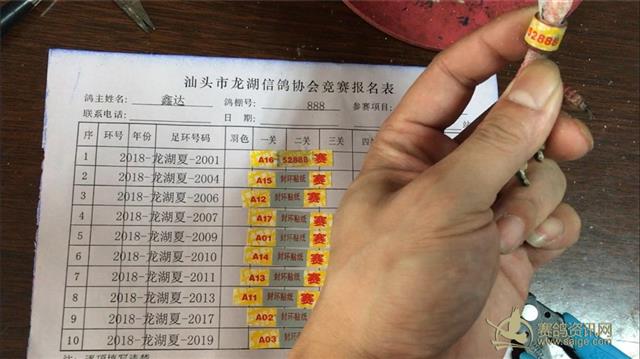 52888
汕头市龙湖信鸽协会竞赛报名表
鸽主姓名: 鑫达 鸽棚号: 888 参赛项目:
联系电话: 日 期: 站
序 环号 年份 足环号码 羽色 一关 二关 三关 四
1 2018-龙湖夏-2001 A16 52888 赛
2 2018-龙湖夏-2004 A15 封环贴纸 赛
3 2018-龙湖夏-2006 A12 封环贴纸 赛
4 2018-龙湖夏-2007 A17 封环贴纸 赛
5 2018-龙湖夏-2009 A01 封环贴纸 赛
6 2018-龙湖夏-2010 A14 封环贴纸 赛
7 2018-龙湖夏-2011 A13 封环贴纸 赛
8 2018-龙湖夏-2013 A11 封环贴纸 赛
9 2018-龙湖夏-2017 A02 封环贴纸
10 2018-龙湖夏-2019 A03 封环贴纸
赛鸽资讯网
www.saige.com